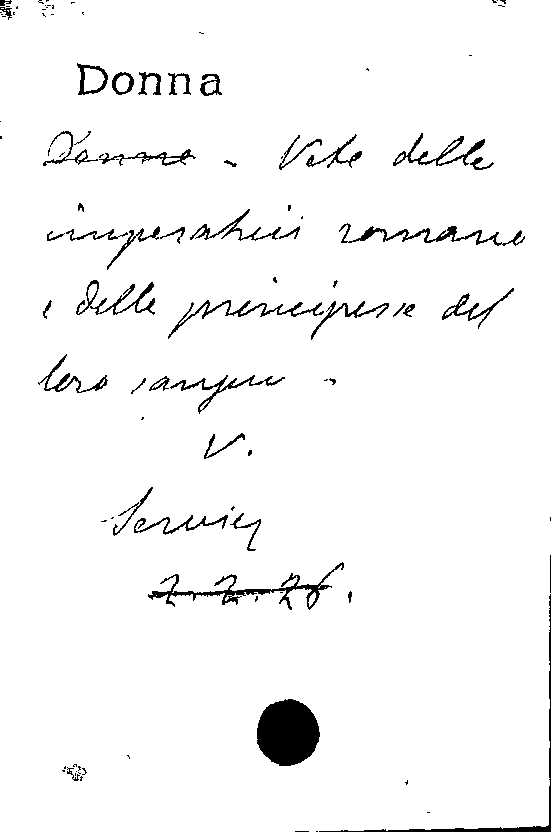 Donna
Donne - Vite delle
imperatrici romane
e delle principesse del
loro sangue -
V.
Serviez
2. 2. 26.